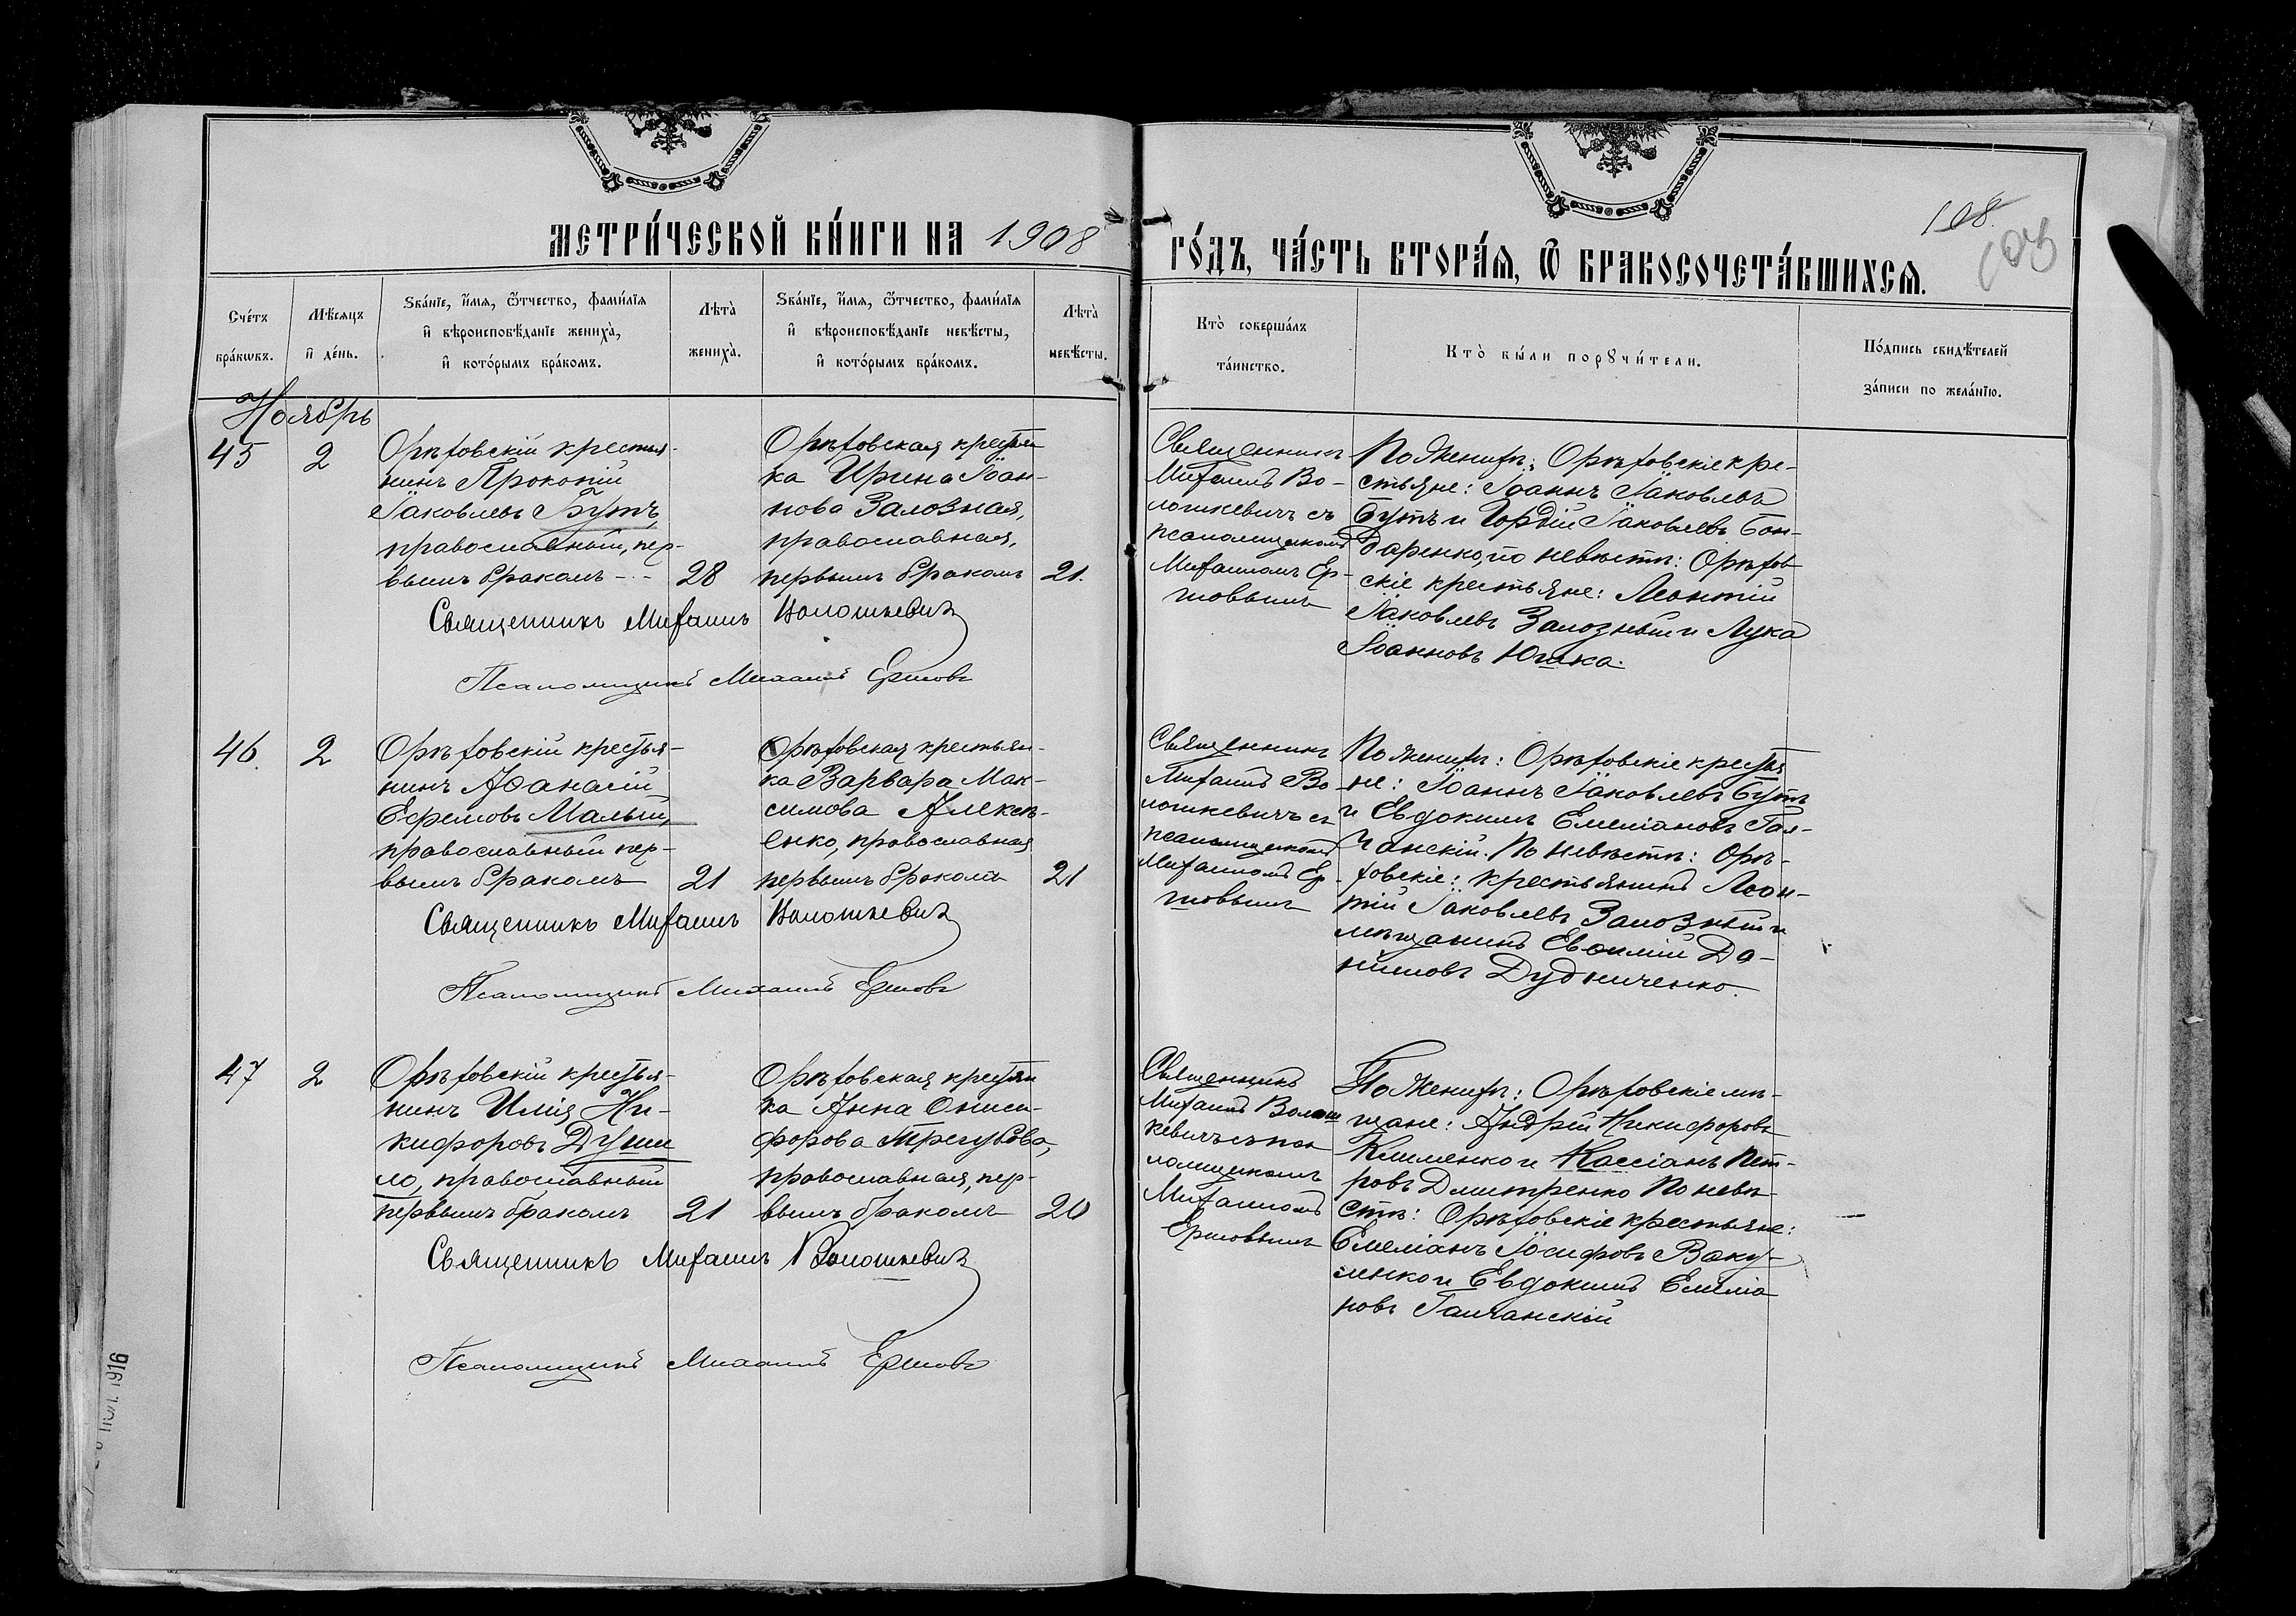 МЕТРИ́ЧЕСКОЙ КНИ́ГИ НА 1908
ГО́ДЪ, ЧА́СТЬ ВТОРА́Ѧ, Ѿ БРАКОСОЧЕТА́ВШИХСѦ.
108.
103
Сче́тъ бра́кѡвъ.
Мѣ́сяцъ и҆ де́нь.
Ѕва́нїе, и҆́мѧ, ѻ҆́тчество, фами́лїѧ
и҆ вѣроисповѣ́данїе женихà,
и҆ кото́рымъ бра́комъ.
Лѣтà женихà.
Ѕва́нїе, и҆́мѧ, ѻ҆́тчество, фами́лїѧ
и҆ вѣроисповѣ́данїе невѣ́сты,
и҆ кото́рымъ бра́комъ.
Лѣтà невѣ́сты.
Кто̀ соверша́лъ
та́инство.
Кто̀ бы́ли порꙋчи́тели.
По́дпись свидѣ́телей
за́писи по жела́нїю.
Ноябрь
45
2
Орѣховскій крестья-
нинъ Прокопій
Іаковлевъ Бутъ,
православный, пер-
вымъ бракомъ -
28
Орѣховская крестьян
ка Ирина Іоан-
нова Залозная,
православная,
первымъ бракомъ
21.
Священникъ
Михаилъ Во-
лошкевичъ съ
псаломщикомъ
Михаиломъ Ер-
шовымъ
По женихѣ: Орѣховскіе кре-
стьяне: Іоаннъ Іаковлевъ
Бутъ и Гордій Іаковлевъ Бон-
даренко, по невѣстѣ: Орѣхов
скіе крестьяне: Леонтій
Іаковлевъ Залозный и Лука
Іоанновъ Юшка.
Священникъ Михаилъ Волошкевичъ
Псаломщикъ Михаилъ Ершовъ
46.
2
Орѣховскій крестья-
нинъ Аѳанасій
Ефремовъ Малый,
православный пер-
вымъ бракомъ
21
Орѣховская крестьян-
ка Варвара Мак-
симова Алексѣ-
енко, православная
первымъ бракомъ
21
Священникъ
Михаилъ Во-
лошкевичъ съ
псаломщикомъ
Михаиломъ Ер-
шовымъ
По женихѣ: Орѣховскіе крестья
не: Іоаннъ Іаковлевъ Бутъ
и Евдокимъ Емеліановъ Гал-
чанскій. По невѣстѣ: Орѣ-
ховскіе: крестьянинъ Леон-
тій Іаковлевъ Залозный и
мѣщанинъ Евѳимій Да-
ниловъ Дудниченко.
Священникъ Михаилъ Волошкевичъ
Псаломщикъ Михаилъ Ершовъ
47
2
Орѣховскій крестья-
нинъ Илія Ни-
кифоровъ Души
ло, православный
первымъ бракомъ
21
Орѣховская крестьян
ка Анна Ониси-
форова Трегубова,
православная, пер-
вымъ бракомъ
20
Священникъ
Михаилъ Волош
кевичъ съ пса
ломщикомъ
Михаиломъ
Ершовымъ
По женихѣ: Орѣховскіе мѣ-
щане: Андрей Никифоровъ
Клименко и Кассіанъ Пет-
ровъ Дмитренко По невѣ-
стѣ: Орѣховскіе крестьяне:
Емеліанъ Іосифовъ Ваку-
ленко и Евдокимъ Емеліа
новъ Галчанскій
Священникъ Михаилъ Волошкевичъ
Псаломщикъ Михаилъ Ершовъ
1916